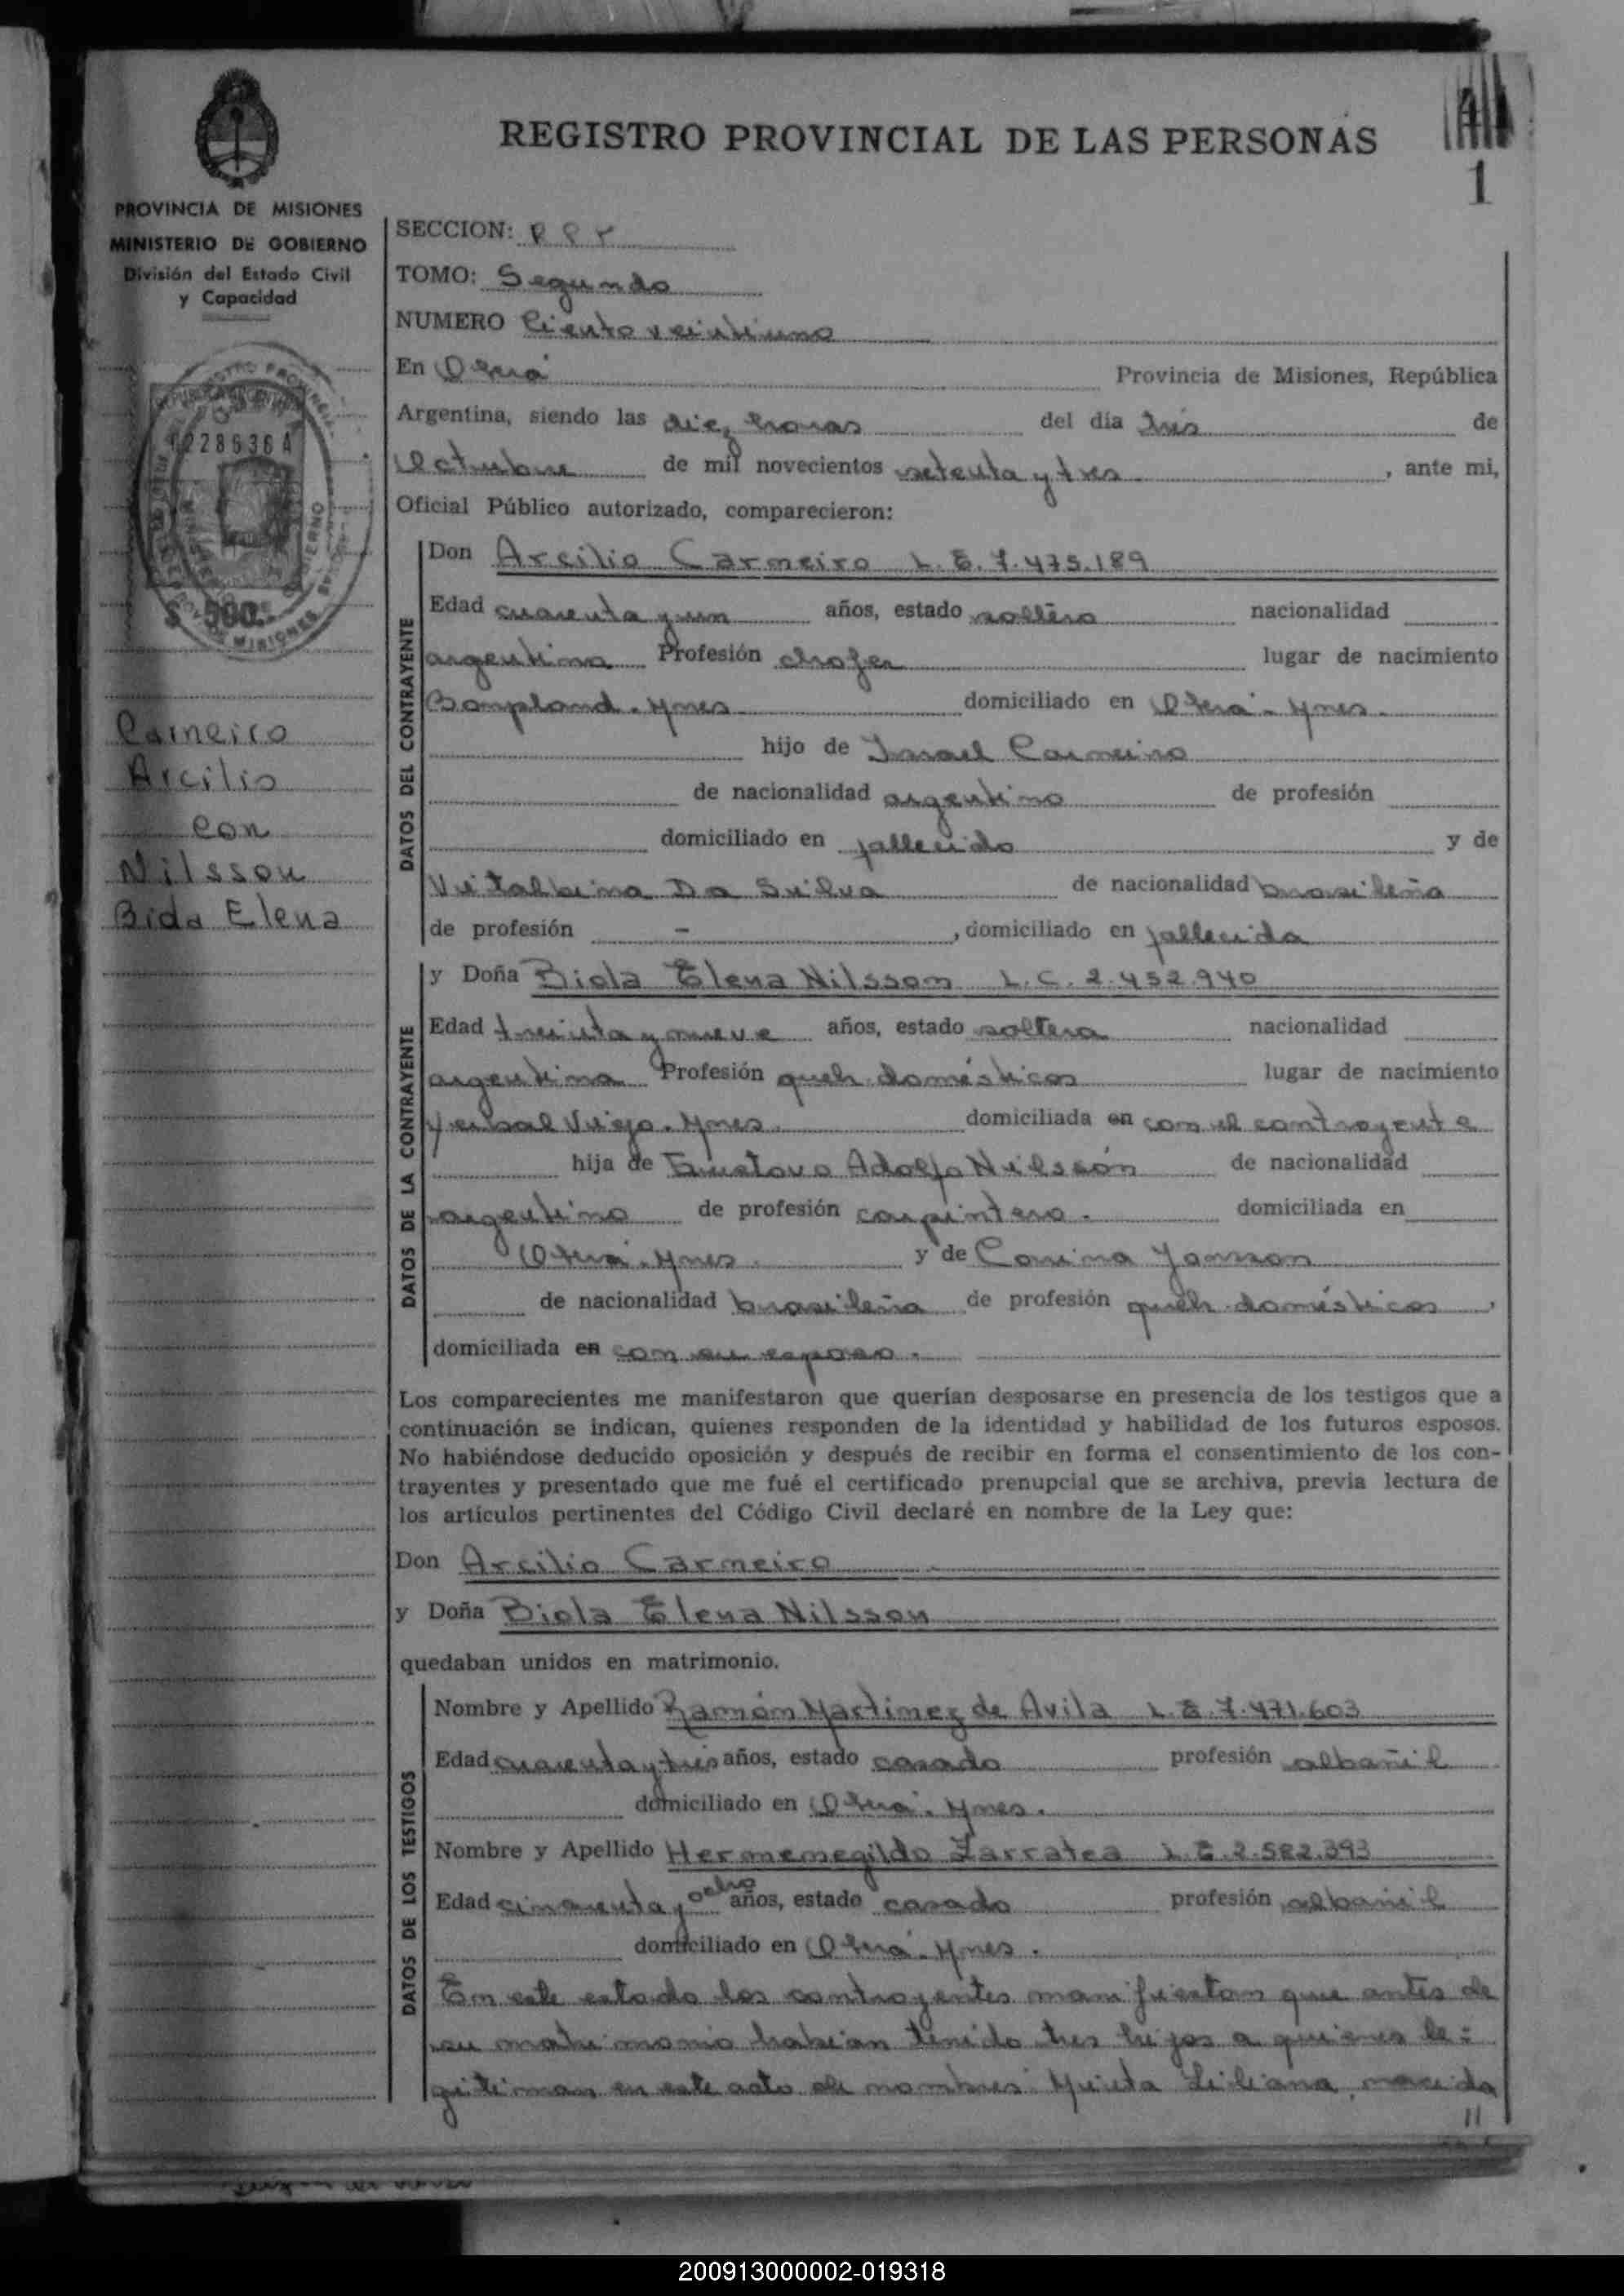 REGISTRO PROVINCIAL DE LAS PERSONAS
1
PROVINCIA DE MISIONES
MINISTERIO DE GOBIERNO
División del Estado Civil
y Capacidad
SECCION: R P P
TOMO: Segundo
NUMERO Ciento veintiuno
En Oberá Provincia de Misiones, República
Argentina, siendo las diez horas del día tres de
Octubre de mil novecientos setenta y tres, ante mi,
Oficial Público autorizado, comparecieron:
DATOS DEL CONTRAYENTE
Don Arcilio Carneiro L.E. 7.475.189
Edad cuarenta y un años, estado soltero nacionalidad
argentina Profesión chofer lugar de nacimiento
Bompland. Mnes domiciliado en Oberá - Mnes.
hijo de Israel Carneiro
de nacionalidad argentino de profesión
domiciliado en fallecido y de
Vitalbina Da Silva de nacionalidad brasileña
de profesión -, domiciliado en fallecida
DATOS DE LA CONTRAYENTE
y Doña Bida Elena Nilsson L.C. 2.452.940
Edad treinta y nueve años, estado soltera nacionalidad
argentina Profesión queh. domésticos lugar de nacimiento
Yerbal Viejo. Mnes. domiciliada en con el contrayente
hija de Gustavo Adolfo Nilsson de nacionalidad
argentino de profesión carpintero. domiciliada en
Oberá. Mnes. y de Carina Jonsson
de nacionalidad brasileña de profesión queh. domésticos,
domiciliada en con su esposo.
Los comparecientes me manifestaron que querían desposarse en presencia de los testigos que a
continuación se indican, quienes responden de la identidad y habilidad de los futuros esposos.
No habiéndose deducido oposición y después de recibir en forma el consentimiento de los con-
trayentes y presentado que me fué el certificado prenupcial que se archiva, previa lectura de
los artículos pertinentes del Código Civil declaré en nombre de la Ley que:
Don Arcilio Carneiro
y Doña Bida Elena Nilsson
quedaban unidos en matrimonio.
DATOS DE LOS TESTIGOS
Nombre y Apellido Ramón Martinez de Avila L.E. 7.471.603
Edad cuarenta y tres años, estado casado profesión albañil
domiciliado en Oberá. Mnes.
Nombre y Apellido Hermenegildo Zarratea L.E. 2.582.393
Edad cincuenta y ocho años, estado casado profesión albañil
domiciliado en Oberá. Mnes.
En este estado los contrayentes manifiestan que antes de
su matrimonio habían tenido tres hijos a quienes le=
gitiman en este acto de nombres: Mirta Liliana, nacida
11
REPUBLICA ARGENTINA
0228636 A
$ 500.-
Carneiro
Arcilio
con
Nilsson
Bida Elena
200913000002-019318